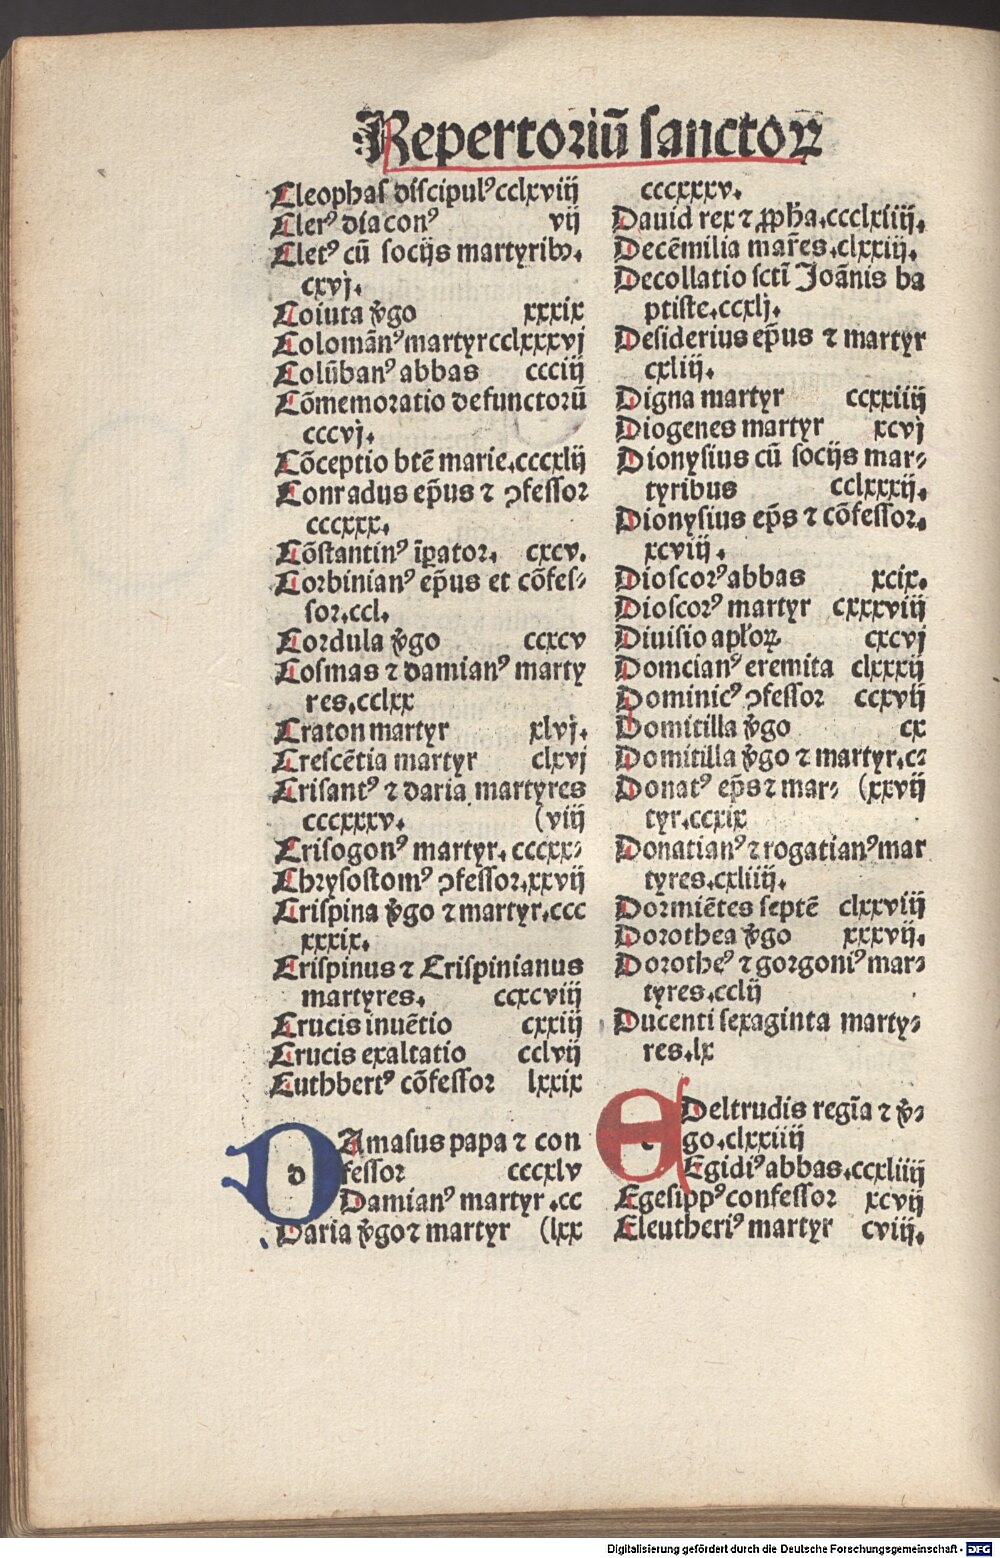 Repertoriū sanctoꝝ
Cleophas discipulꝰ cclxviij
Clerꝰ diaconꝰ vij
Cletꝰ cū socijs martyribꝰ.
cxvj.
Coiuta v̄go xxxix
Colomānꝰ martyr cclxxxvj
Colūbanꝰ abbas ccciij
Cōmemoratio defunctorū
cccvj.
Cōceptio btē marie. cccxlij
Conradus ep̄us ⁊ ꝯfessor
cccxxx.
Cōstantinꝰ īꝑator. cxcv.
Corbinianꝰ ep̄us et cōfes⸗
sor. ccl.
Cordula v̄go ccxcv
Cosmas ⁊ damianꝰ marty
res. cclxx
Craton martyr xlvj.
Crescētia martyr clxvj
Crisantꝰ ⁊ daria martyres
cccxxxv. (viij
Crisogonꝰ martyr. cccxx⸗
Chrysostomꝰ ꝯfessor. xxvij
Crispina v̄go ⁊ martyr. ccc
xxxix.
Crispinus ⁊ Crispinianus
martyres. ccxcviij
Crucis inuētio cxxiij
Crucis exaltatio cclvij
Cuthbertꝰ cōfessor lxxix
D d Amasus papa ⁊ con
fessor cccxlv
Damianꝰ martyr. cc
Daria v̄go ⁊ martyr (lxx
cccxxxv.
Dauid rex ⁊ ꝓpha. ccclxiiij.
Decēmilia mar̄es. clxxiij.
Decollatio sctī Joānis ba
ptiste. ccxlj.
Desiderius ep̄us ⁊ martyr
cxliij.
Digna martyr ccxxiiij
Diogenes martyr xcvj
Dionysius cū socijs mar⸗
tyribus cclxxxij.
Dionysius ep̄s ⁊ cōfessor.
xcviij.
Dioscorꝰ abbas xcix.
Dioscorꝰ martyr cxxxviij
Diuisio apl'oꝝ cxcvj
Domcianꝰ eremita clxxxij
Dominicꝰ ꝯfessor ccxvij
Domitilla v̄go cx
Domitilla v̄go ⁊ martyr. c⸗
Donatꝰ ep̄s ⁊ mar⸗ (xxvij
tyr. ccxix
Donatianꝰ ⁊ rogatianꝰ mar
tyres. cxliiij.
Dormiētes septē clxxviij
Dorothea v̄go xxxvij.
Dorotheꝰ ⁊ gorgoniꝰ mar⸗
tyres. cclij
Ducenti sexaginta marty⸗
res. lx
E e Deltrudis regīa ⁊ v̄⸗
go. clxxiiij
Egidiꝰ abbas. ccxliiij
Egesippꝰ confessor xcvij
Eleutheriꝰ martyr cviij.
Digitalisierung gefördert durch die Deutsche Forschungsgemeinschaft - DFG